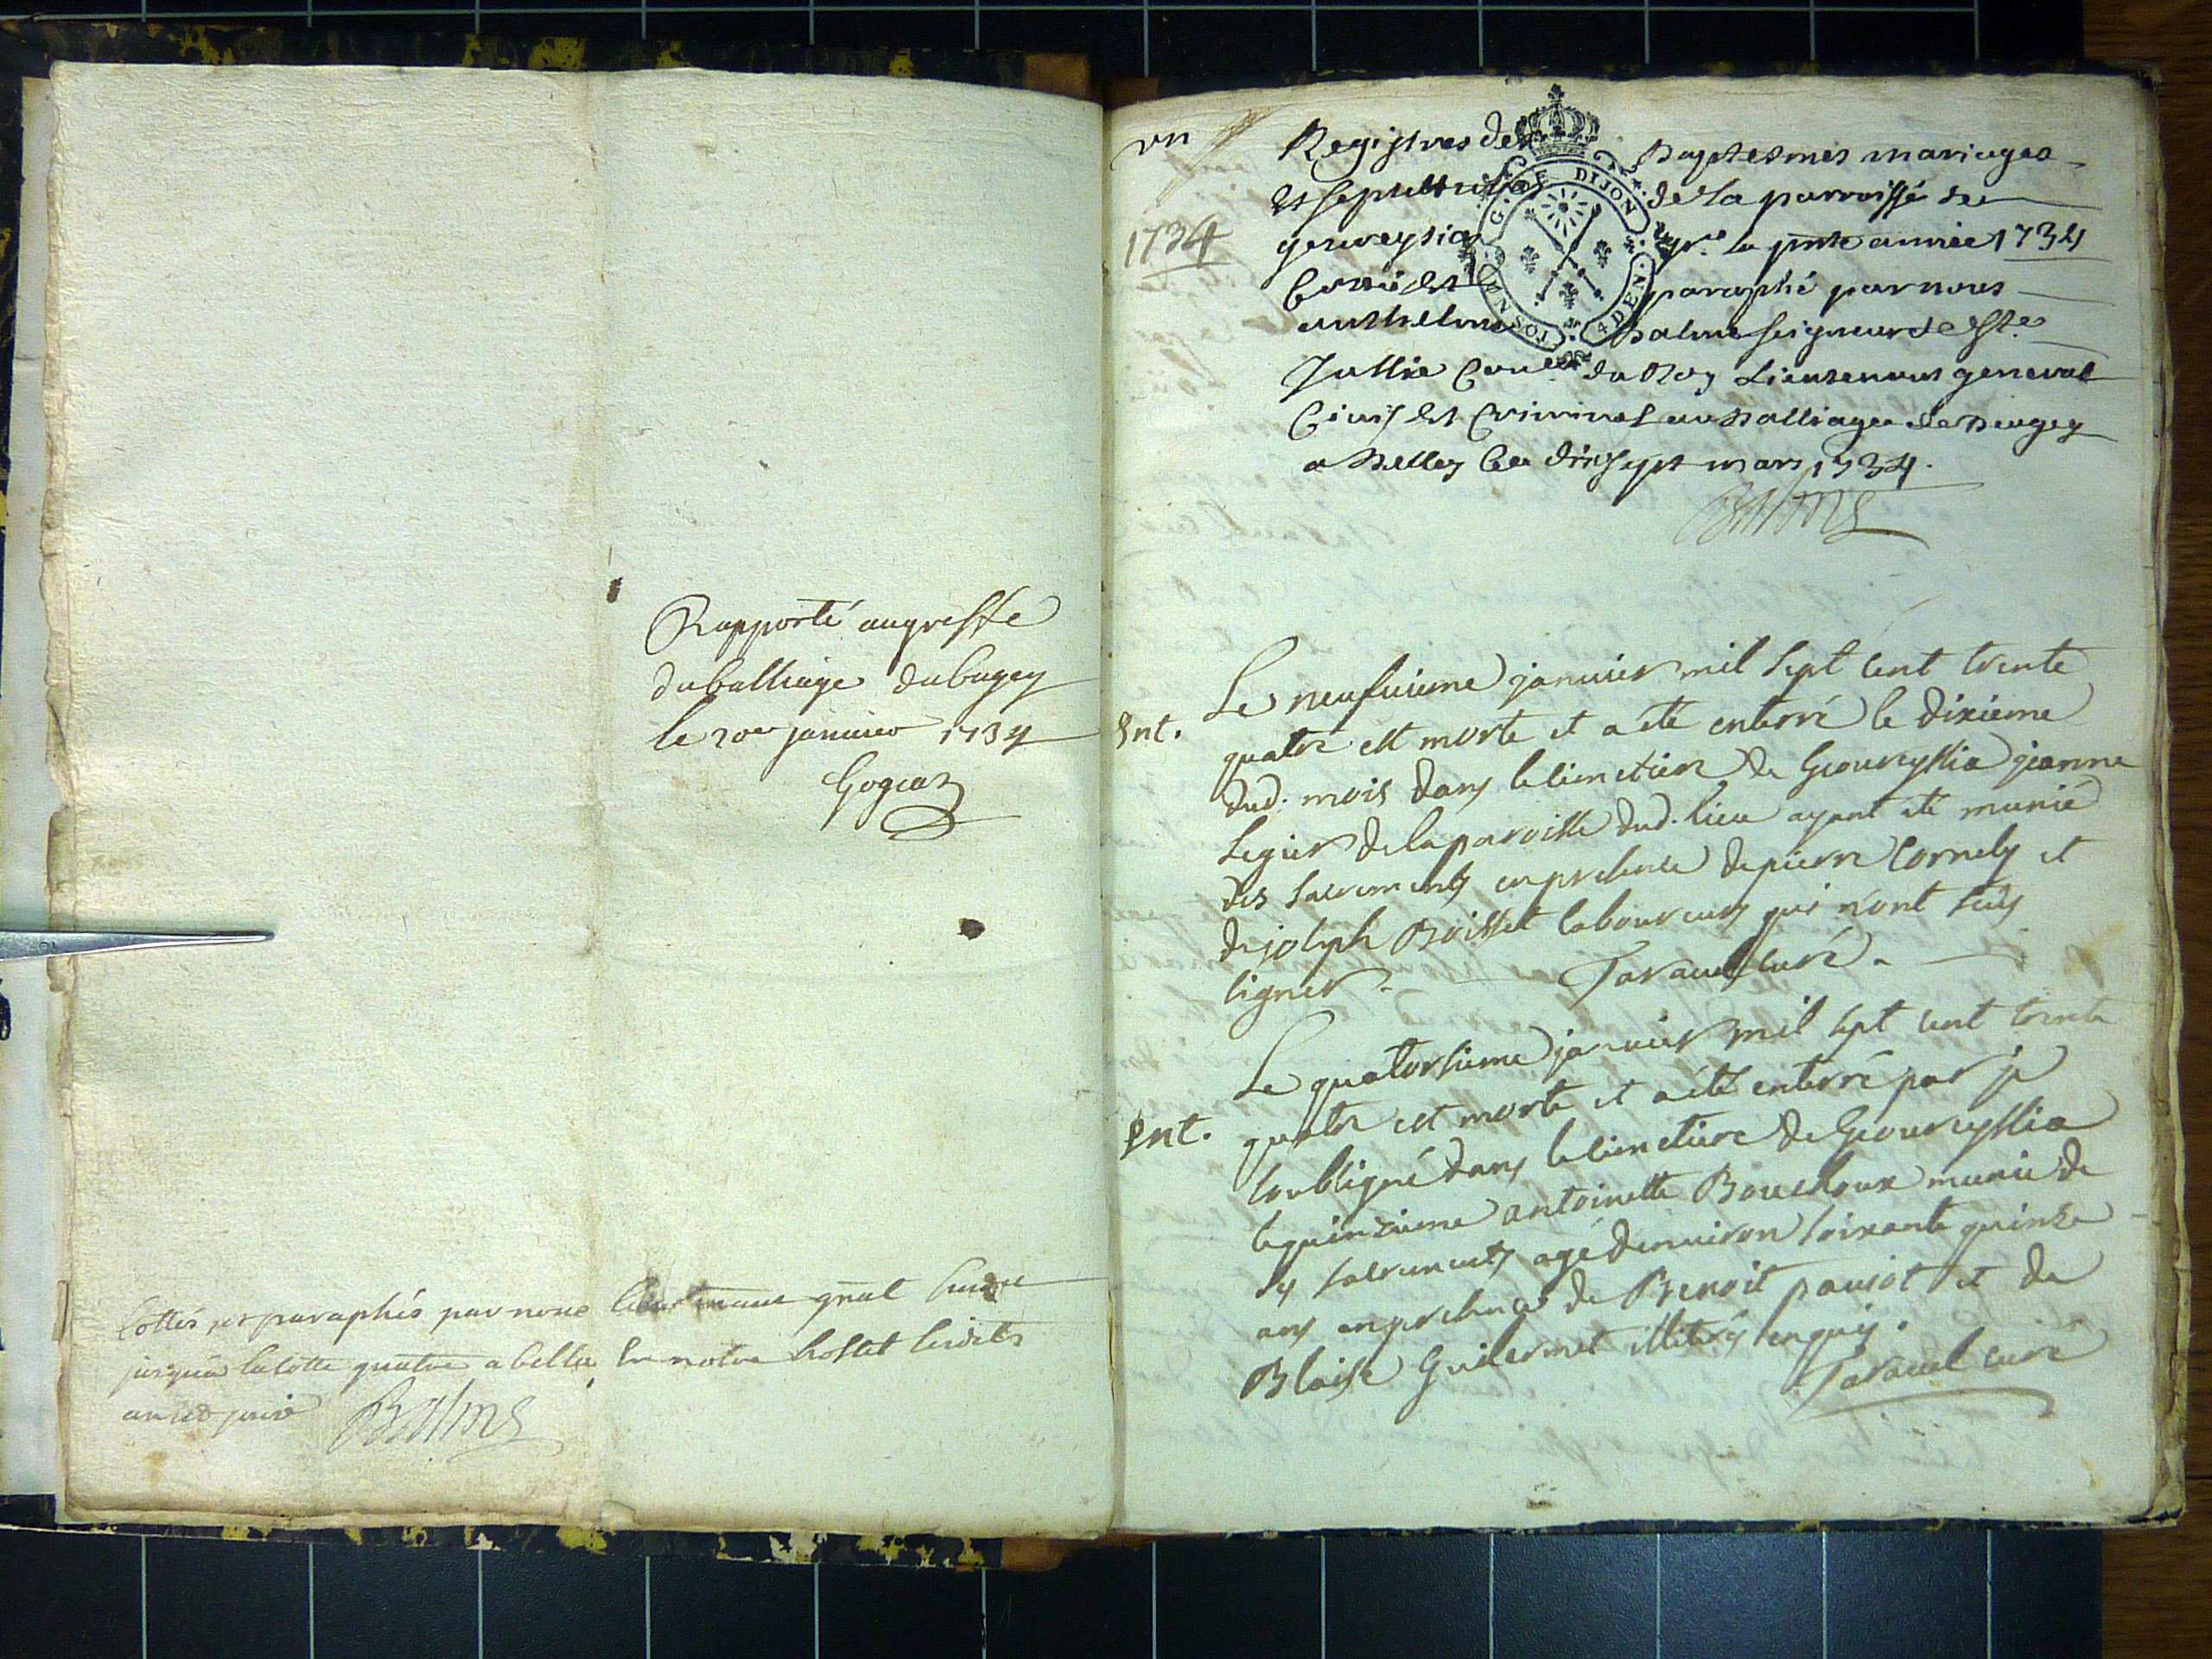 Rapporté au greffe
du balliage du bugey
le 20er janvier 1734
Gogeat
Cottés et paraphés par nous Lieutenant gnal
jusqua la cotte quatre a belley En notre hostel lesdits
an et jour Balme
un
1734
Registres des Baptesmes mariages
Et sepultures de la parroisse de
geoureysia pr. la pnte année 1734
Cotté Et paraphé par nous
anthelme Balme seigneur de Ste
Jullie Coner du Roy Lieutenant general
Civil Et Criminel au Balliage de Beugey
a Belley Ce dixsept mars 1734.
Balme
G. DE DIJON
4 DEN.
Ent.
Le neufuieme januier mil sept cent trente
quatre est morte et a été enterré le dixieme
dud. mois dans le cimetiere de Geoureyssia jeanne
Legier de la paroisse dud. lieu ayant été munie
des sacrements en presence de pierre Cornely et
de joseph Boisset laboureurs qui n'ont sçus
signer. Tavauel curé.
Ent.
Le quatorsieme januier mil sept cent trente
quatre est morte et a été enterré par je
soubsigné dans le cimetiere de Geoureyssia
le quinzieme antoinette Bouchoux munie de
sy sacrements agé denuiron soixante quinse
ans en presence de Benoit pauiot et de
Blaise Guilermet illiterés enquis.
Tavauel curé